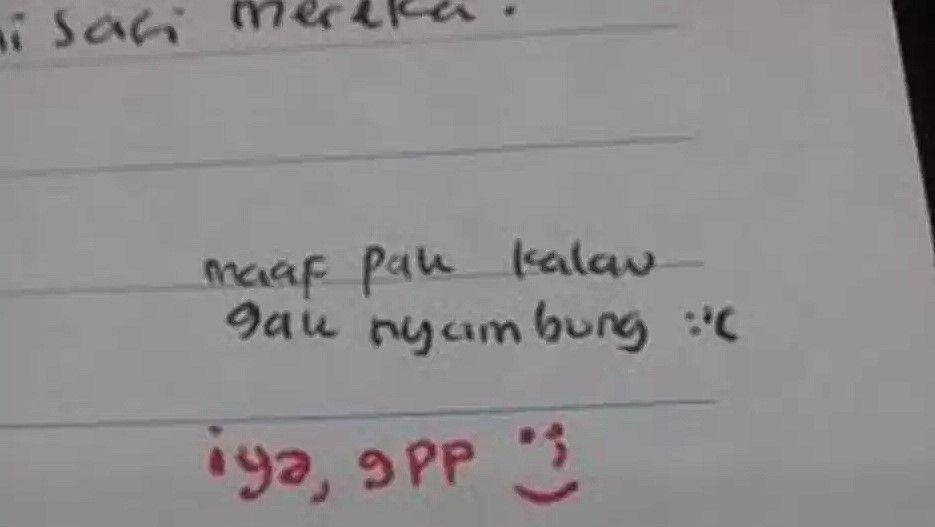 sasi mereka.
maaf pak kalau
gak nyambung :'(
iya, gpp :)